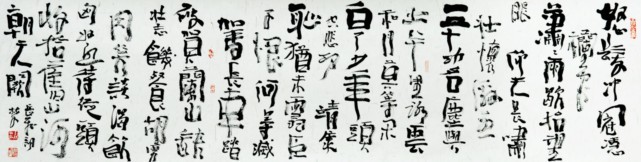 怒髮冲冠憑
欄處
瀟瀟雨歇抬望
眼仰天長嘯
壯懷激烈
三十功名塵與
土八千里路雲
和月莫等閑
白了少年頭
空悲切靖康
恥猶未雪臣
子恨何時滅
駕長車踏
破賀蘭山缺
壯志饑餐胡虜
肉笑談渴飲
匈奴血待從頭
收拾舊山河
朝天闕
岳飛詞